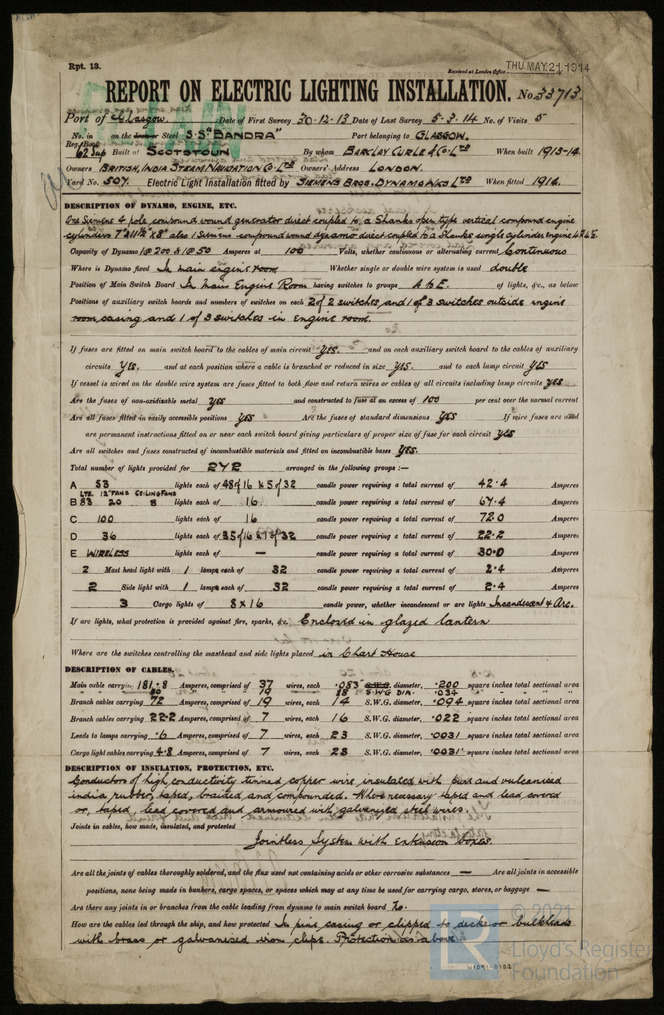 Rpt. 13.
THU. MAY. 21 1914
Received at London Office
REPORT ON ELECTRIC LIGHTING INSTALLATION. No. 33713.
Port of Glasgow Date of First Survey 30.12.13 Date of Last Survey 5.3.14 No. of Visits 5
No. in on the Iron or Steel S.S "BANDRA" Port belonging to GLASGOW.
Reg. Book
62 Sup Built at SCOTSTOUN By whom BARCLAY CURLE & CO. LTD When built 1913-14.
Owners BRITISH INDIA STEAM NAVIGATION CO. LTD Owners' Address LONDON.
Yard No. 507. Electric Light Installation fitted by SIEMENS BROS. DYNAMO WKS LTD When fitted 1914.
DESCRIPTION OF DYNAMO, ENGINE, ETC.
One Siemens 4 pole, compound wound generator direct coupled to a Shanks open type vertical compound engine
cylinders 7" & 11½" x 8" also 1 Siemens compound wound dynamo direct coupled to a Shanks single cylinder engine
Capacity of Dynamo 1 @ 200 & 1 @ 50 Amperes at 100 Volts, whether continuous or alternating current Continuous
Where is Dynamo fixed In main engine room Whether single or double wire system is used double
Position of Main Switch Board In Main Engine Room having switches to groups A to E. of lights, &c., as below
Positions of auxiliary switch boards and numbers of switches on each 2 of 2 switches, and 1 of 3 switches outside engine
room casing and 1 of 3 switches in engine room.
If fuses are fitted on main switch board to the cables of main circuit yes. and on each auxiliary switch board to the cables of auxiliary
circuits yes, and at each position where a cable is branched or reduced in size yes. and to each lamp circuit yes
If vessel is wired on the double wire system are fuses fitted to both flow and return wires or cables of all circuits including lamp circuits yes
Are the fuses of non-oxidizable metal yes and constructed to fuse at an excess of 100 per cent over the normal current
Are all fuses fitted in easily accessible positions yes Are the fuses of standard dimensions yes If wire fuses are used
are permanent instructions fitted on or near each switch board giving particulars of proper size of fuse for each circuit yes
Are all switches and fuses constructed of incombustible materials and fitted on incombustible bases yes.
Total number of lights provided for 272 arranged in the following groups :—
A 53 lights each of 48 of 16 & 5 of 32 candle power requiring a total current of 42.4 Amperes
LTS. 12" FANS CEILING FANS
B 83 20 8 lights each of 16 candle power requiring a total current of 67.4 Amperes
C 100 lights each of 16 candle power requiring a total current of 72.0 Amperes
D 36 lights each of 35 of 16 & 1 of 32 candle power requiring a total current of 22.2 Amperes
E WIRELESS lights each of — candle power requiring a total current of 30.0 Amperes
2 Mast head light with 1 lamps each of 32 candle power requiring a total current of 2.4 Amperes
2 Side light with 1 lamps each of 32 candle power requiring a total current of 2.4 Amperes
3 Cargo lights of 8 x 16 candle power, whether incandescent or arc lights Incandescent & Arc.
If arc lights, what protection is provided against fire, sparks, &c. Enclosed in glazed lantern
Where are the switches controlling the masthead and side lights placed in Chart House
DESCRIPTION OF CABLES.
Main cable carrying 181.8 Amperes, comprised of 37 wires, each .083 S.W.G. diameter, .200 square inches total sectional area
50 19 S.W.G DIA. .034
Branch cables carrying 72 Amperes, comprised of 19 wires, each 14 S.W.G. diameter, .094 square inches total sectional area
Branch cables carrying 22.2 Amperes, comprised of 7 wires, each 16 S.W.G. diameter, .022 square inches total sectional area
Leads to lamps carrying .6 Amperes, comprised of 7 wires, each 23 S.W.G. diameter, .0031 square inches total sectional area
Cargo light cables carrying 4.8 Amperes, comprised of 7 wires, each 23 S.W.G. diameter, .0031 square inches total sectional area
DESCRIPTION OF INSULATION, PROTECTION, ETC.
Conductors of high conductivity tinned copper wire insulated with pure and vulcanised
india rubber, taped, braided, and compounded. Where necessary taped and lead covered
or, taped, lead covered and armoured with galvanized steel wires.
Joints in cables, how made, insulated, and protected
Jointless System with extension boxes.
Are all the joints of cables thoroughly soldered, and the flux used not containing acids or other corrosive substances — Are all joints in accessible
positions, none being made in bunkers, cargo spaces, or spaces which may at any time be used for carrying cargo, stores, or baggage —
Are there any joints in or branches from the cable leading from dynamo to main switch board No.
How are the cables led through the ship, and how protected In pine casing or clipped to decks or bulkheads
with brass or galvanized iron clips. Protection as above.
© 2021
LR Lloyd's Register
Foundation